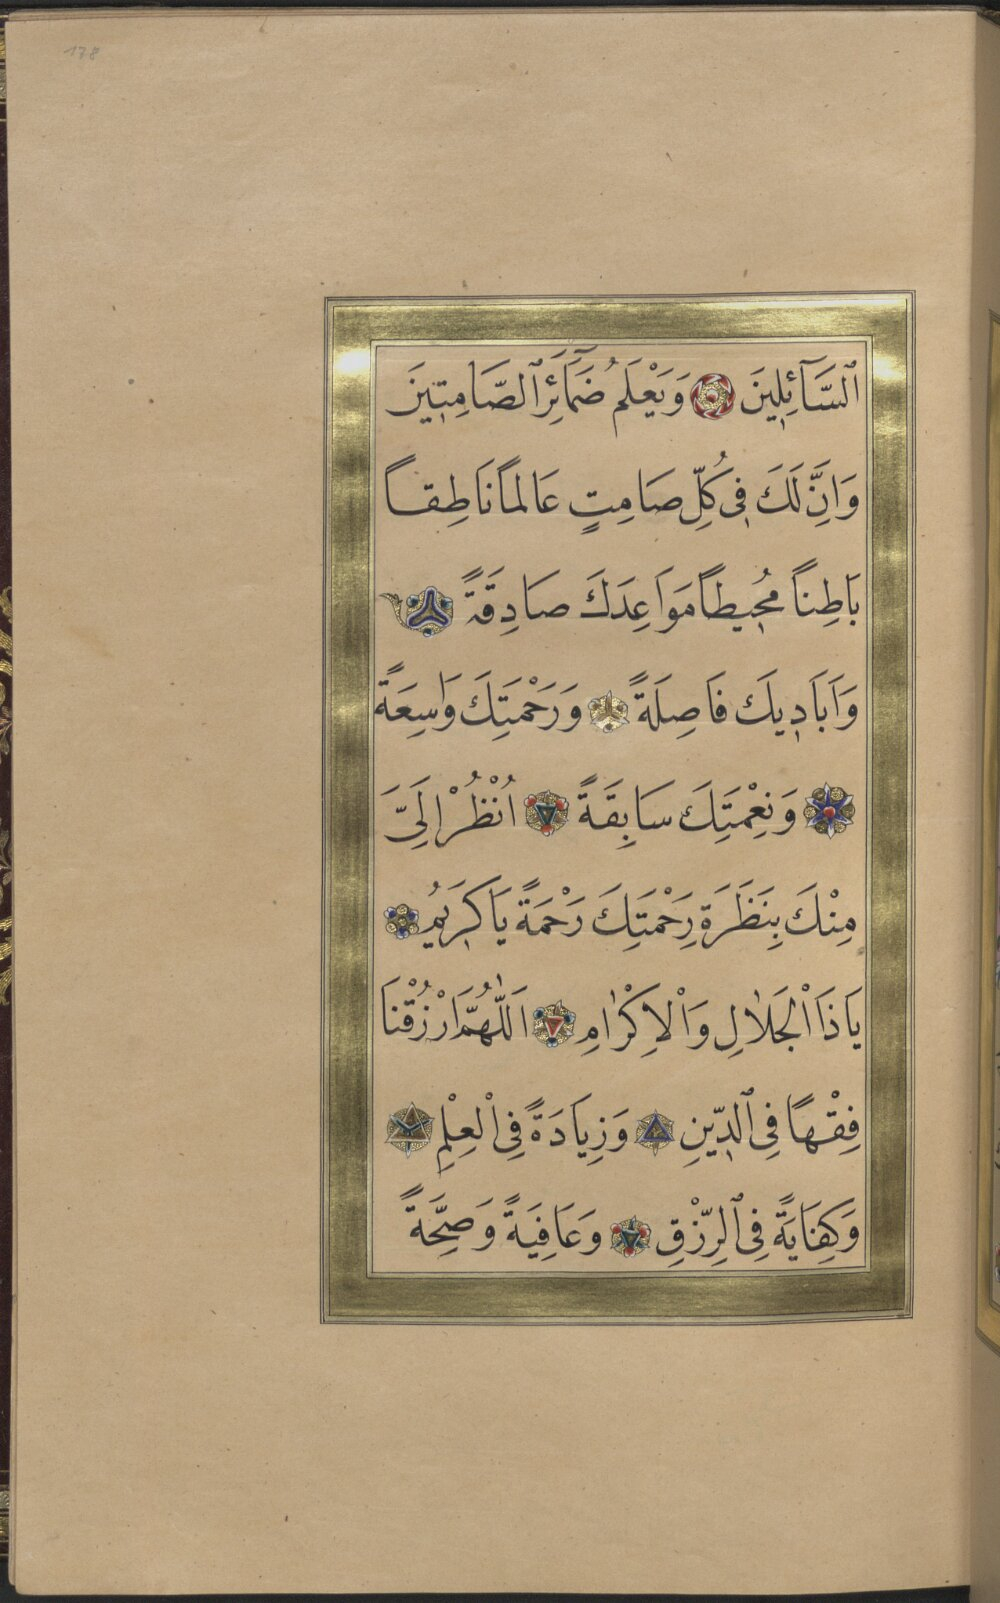 138
ٱلسَّآئِلِينَ وَيَعْلَمُ ضَمَآئِرَ ٱلصَّامِتِينَ
وَاِنَّ لَكَ فِى كُلِّ صَامِتٍ عَالِماً نَاطِقاً
بَاطِناً مُحِيطاً مَوَاعِدَكَ صَادِقَةً
وَاَبَادِيكَ فَاصِلَةً وَرَحْمَتِكَ وَاسِعَةً
وَنِعْمَتِكَ سَابِقَةً اُنْظُرْ اِلَىَّ
مِنْكَ بِنَظَرَةِ رَحْمَتِكَ رَحْمَةً يَا كَرِيمُ
يَا ذَا الْجَلَالِ وَالْاِكْرَامِ اَللّٰهُمَّ ارْزُقْنَا
فِقْهًا فِى ٱلدِّينِ وَزِيَادَةً فِى الْعِلْمِ
وَكِفَايَةً فِى ٱلرِّزْقِ وَعَافِيَةً وَصِحَّةً